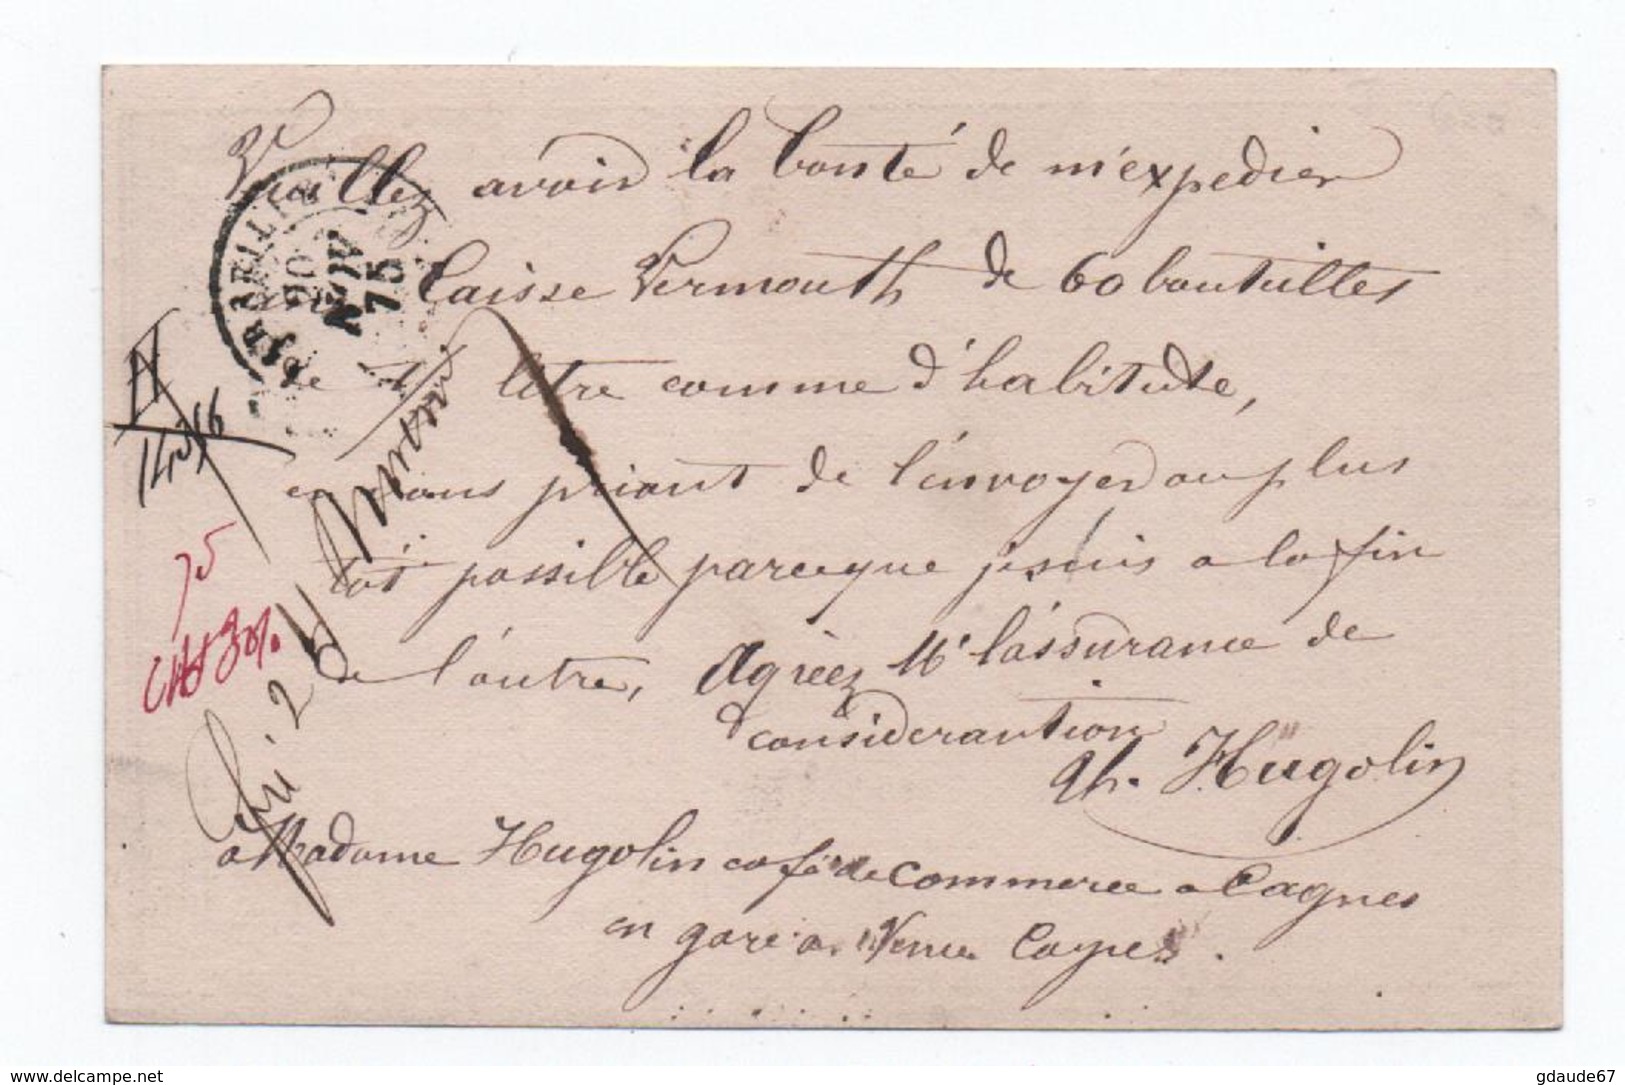 Veuillez avoir la bonté de m'expedier
Caisse Vermouth de 60 bouteilles
de 1 litre comme d'habitude,
en vous priant de l'envoyer au plus
tôt possible parceque je suis a la fin
de l'autre, Agrèez Mr l'assurance de
considerantion
Th. Hugolin
a Madame Hugolin café de commerce a Cagnes
en gare a Cagnes.
MARSEILLE
20
NOV
75
75
www.delcampe.net
gdaude67